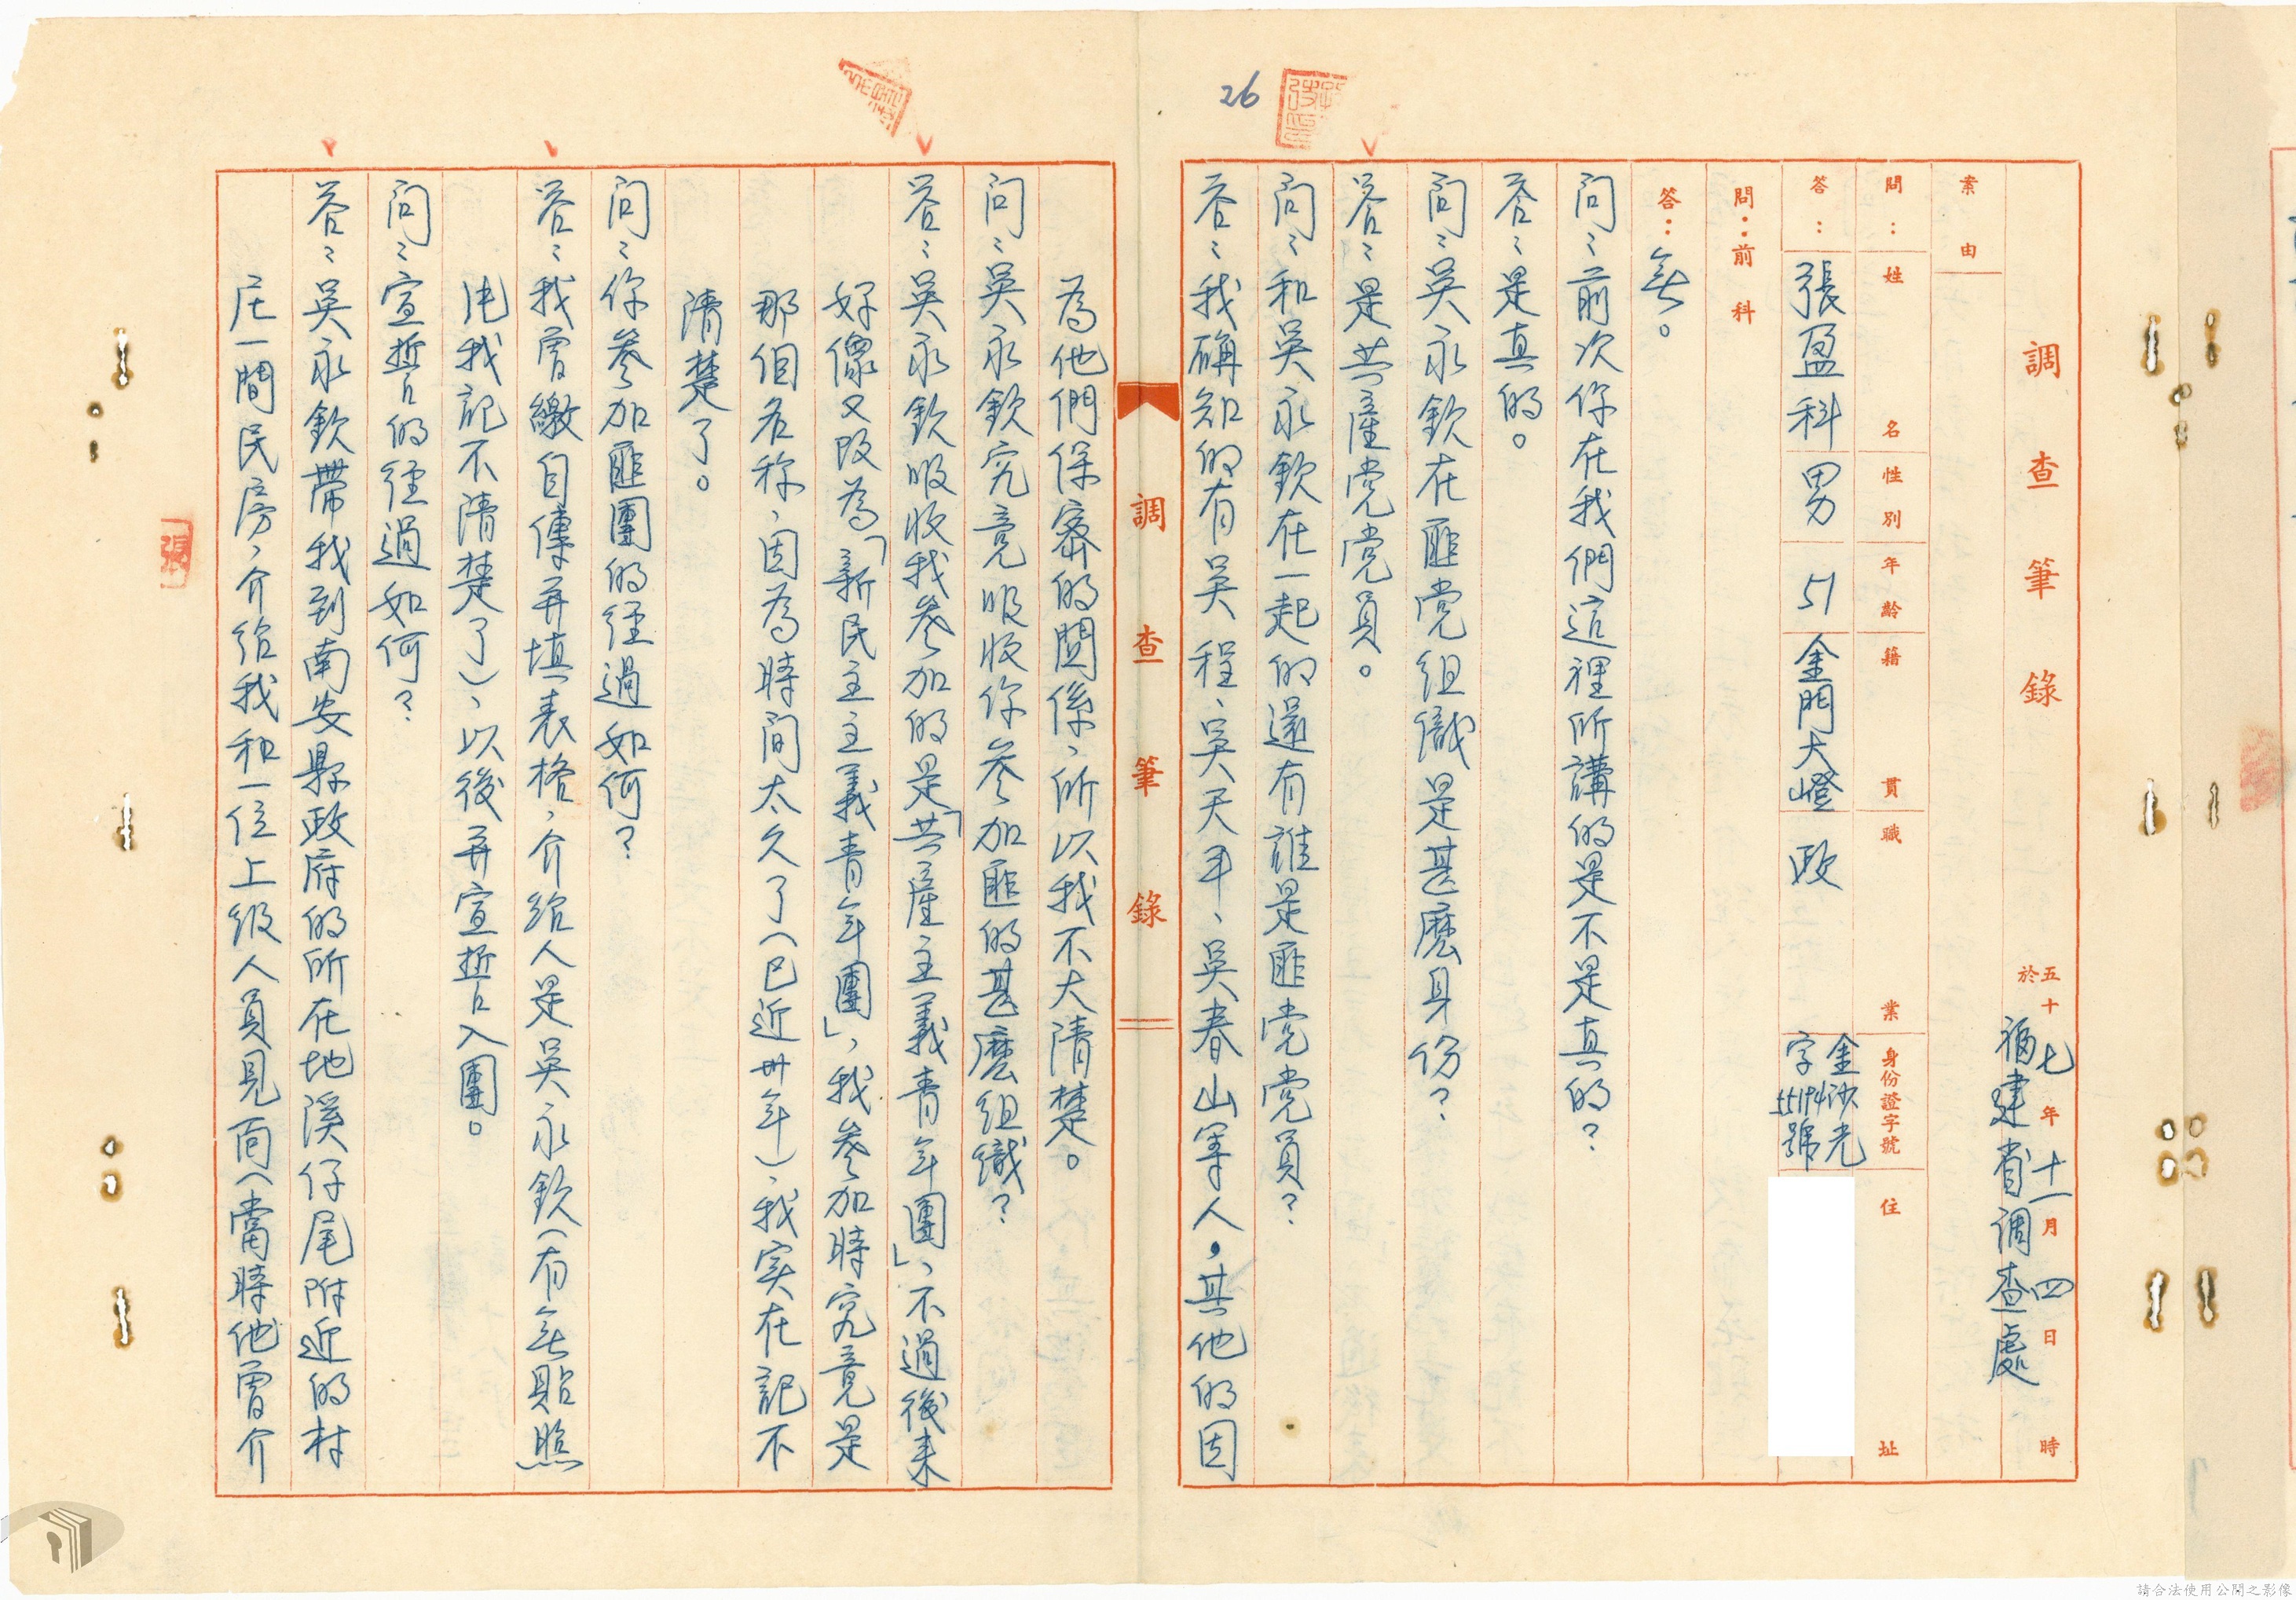 26
調查筆錄
五十七年十一月四日 時
於福建省調查處
案由
問：姓名 性別 年齡 籍貫 職業 身份證字號 住址
答：張盈科 男 51 金門大嶝 政 金沙光字55194號
問：前科
答：無。
問：前次你在我們這裡所講的是不是真的？
答：是真的。
問：吳永欽在匪党組織是甚麼身份？
答：是共產党党員。
問：和吳永欽在一起的還有誰是匪党党員？
答：我确知的有吳程、吳天平、吳春山等人，其他的因
調查筆錄
為他們保密的関係、所以我不大清楚。
問：吳永欽究竟吸收你參加匪的甚麼組織？
答：吳永欽吸收我參加的是「共產主義青年團」，不過後來
好像又改為「新民主主義青年團」，我參加時究竟是
那個名称、因為時間太久了（已近卅年）、我实在記不
清楚了。
問：你參加匪團的經過如何？
答：我曾繳自傳并填表格，介紹人是吳永欽（有無貼照
片我記不清楚了）、以後并宣誓入團。
問：宣誓的經過如何？
答：吳永欽帶我到南安縣政府的所在地溪仔尾附近的村
庄一間民房、介紹我和一位上級人員見面（當時他曾介
請合法使用公開之影像